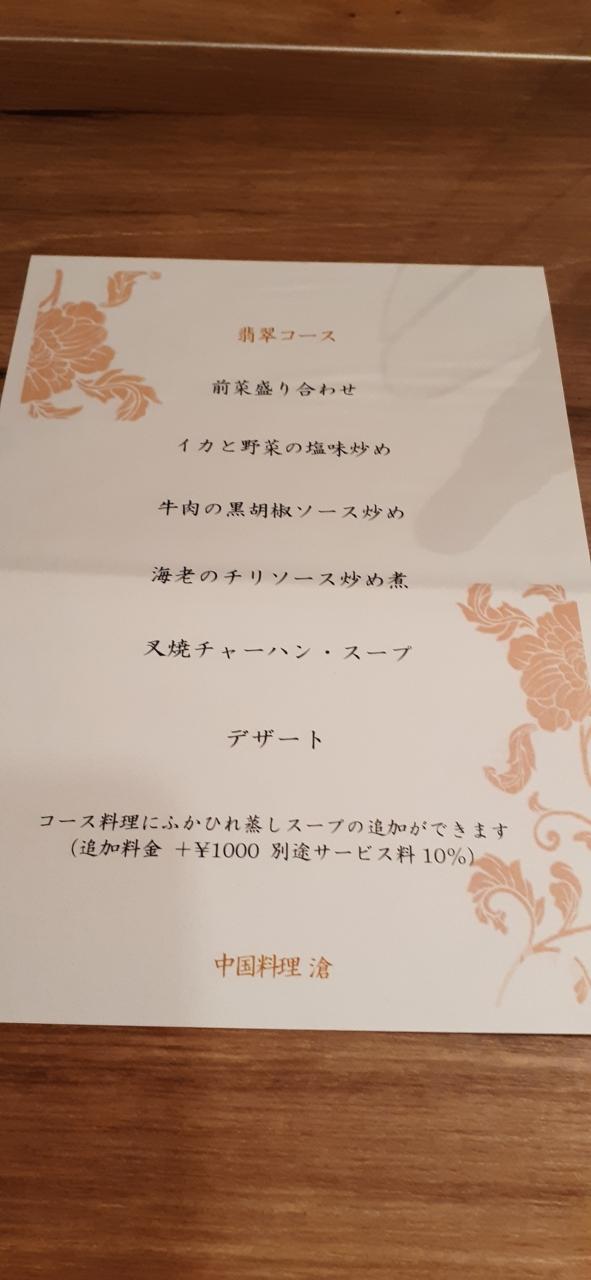 翡翠コース
前菜盛り合わせ
イカと野菜の塩味炒め
牛肉の黒胡椒ソース炒め
海老のチリソース炒め煮
叉焼チャーハン・スープ
デザート
コース料理にふかひれ蒸しスープの追加ができます
(追加料金 +¥1000 別途サービス料10%)
中国料理 滄